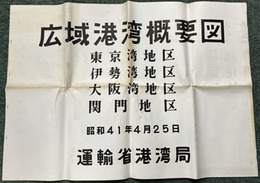 広域港湾概要図
東京湾地区
伊勢湾地区
大阪湾地区
関門地区
昭和41年4月25日
運輸省港湾局